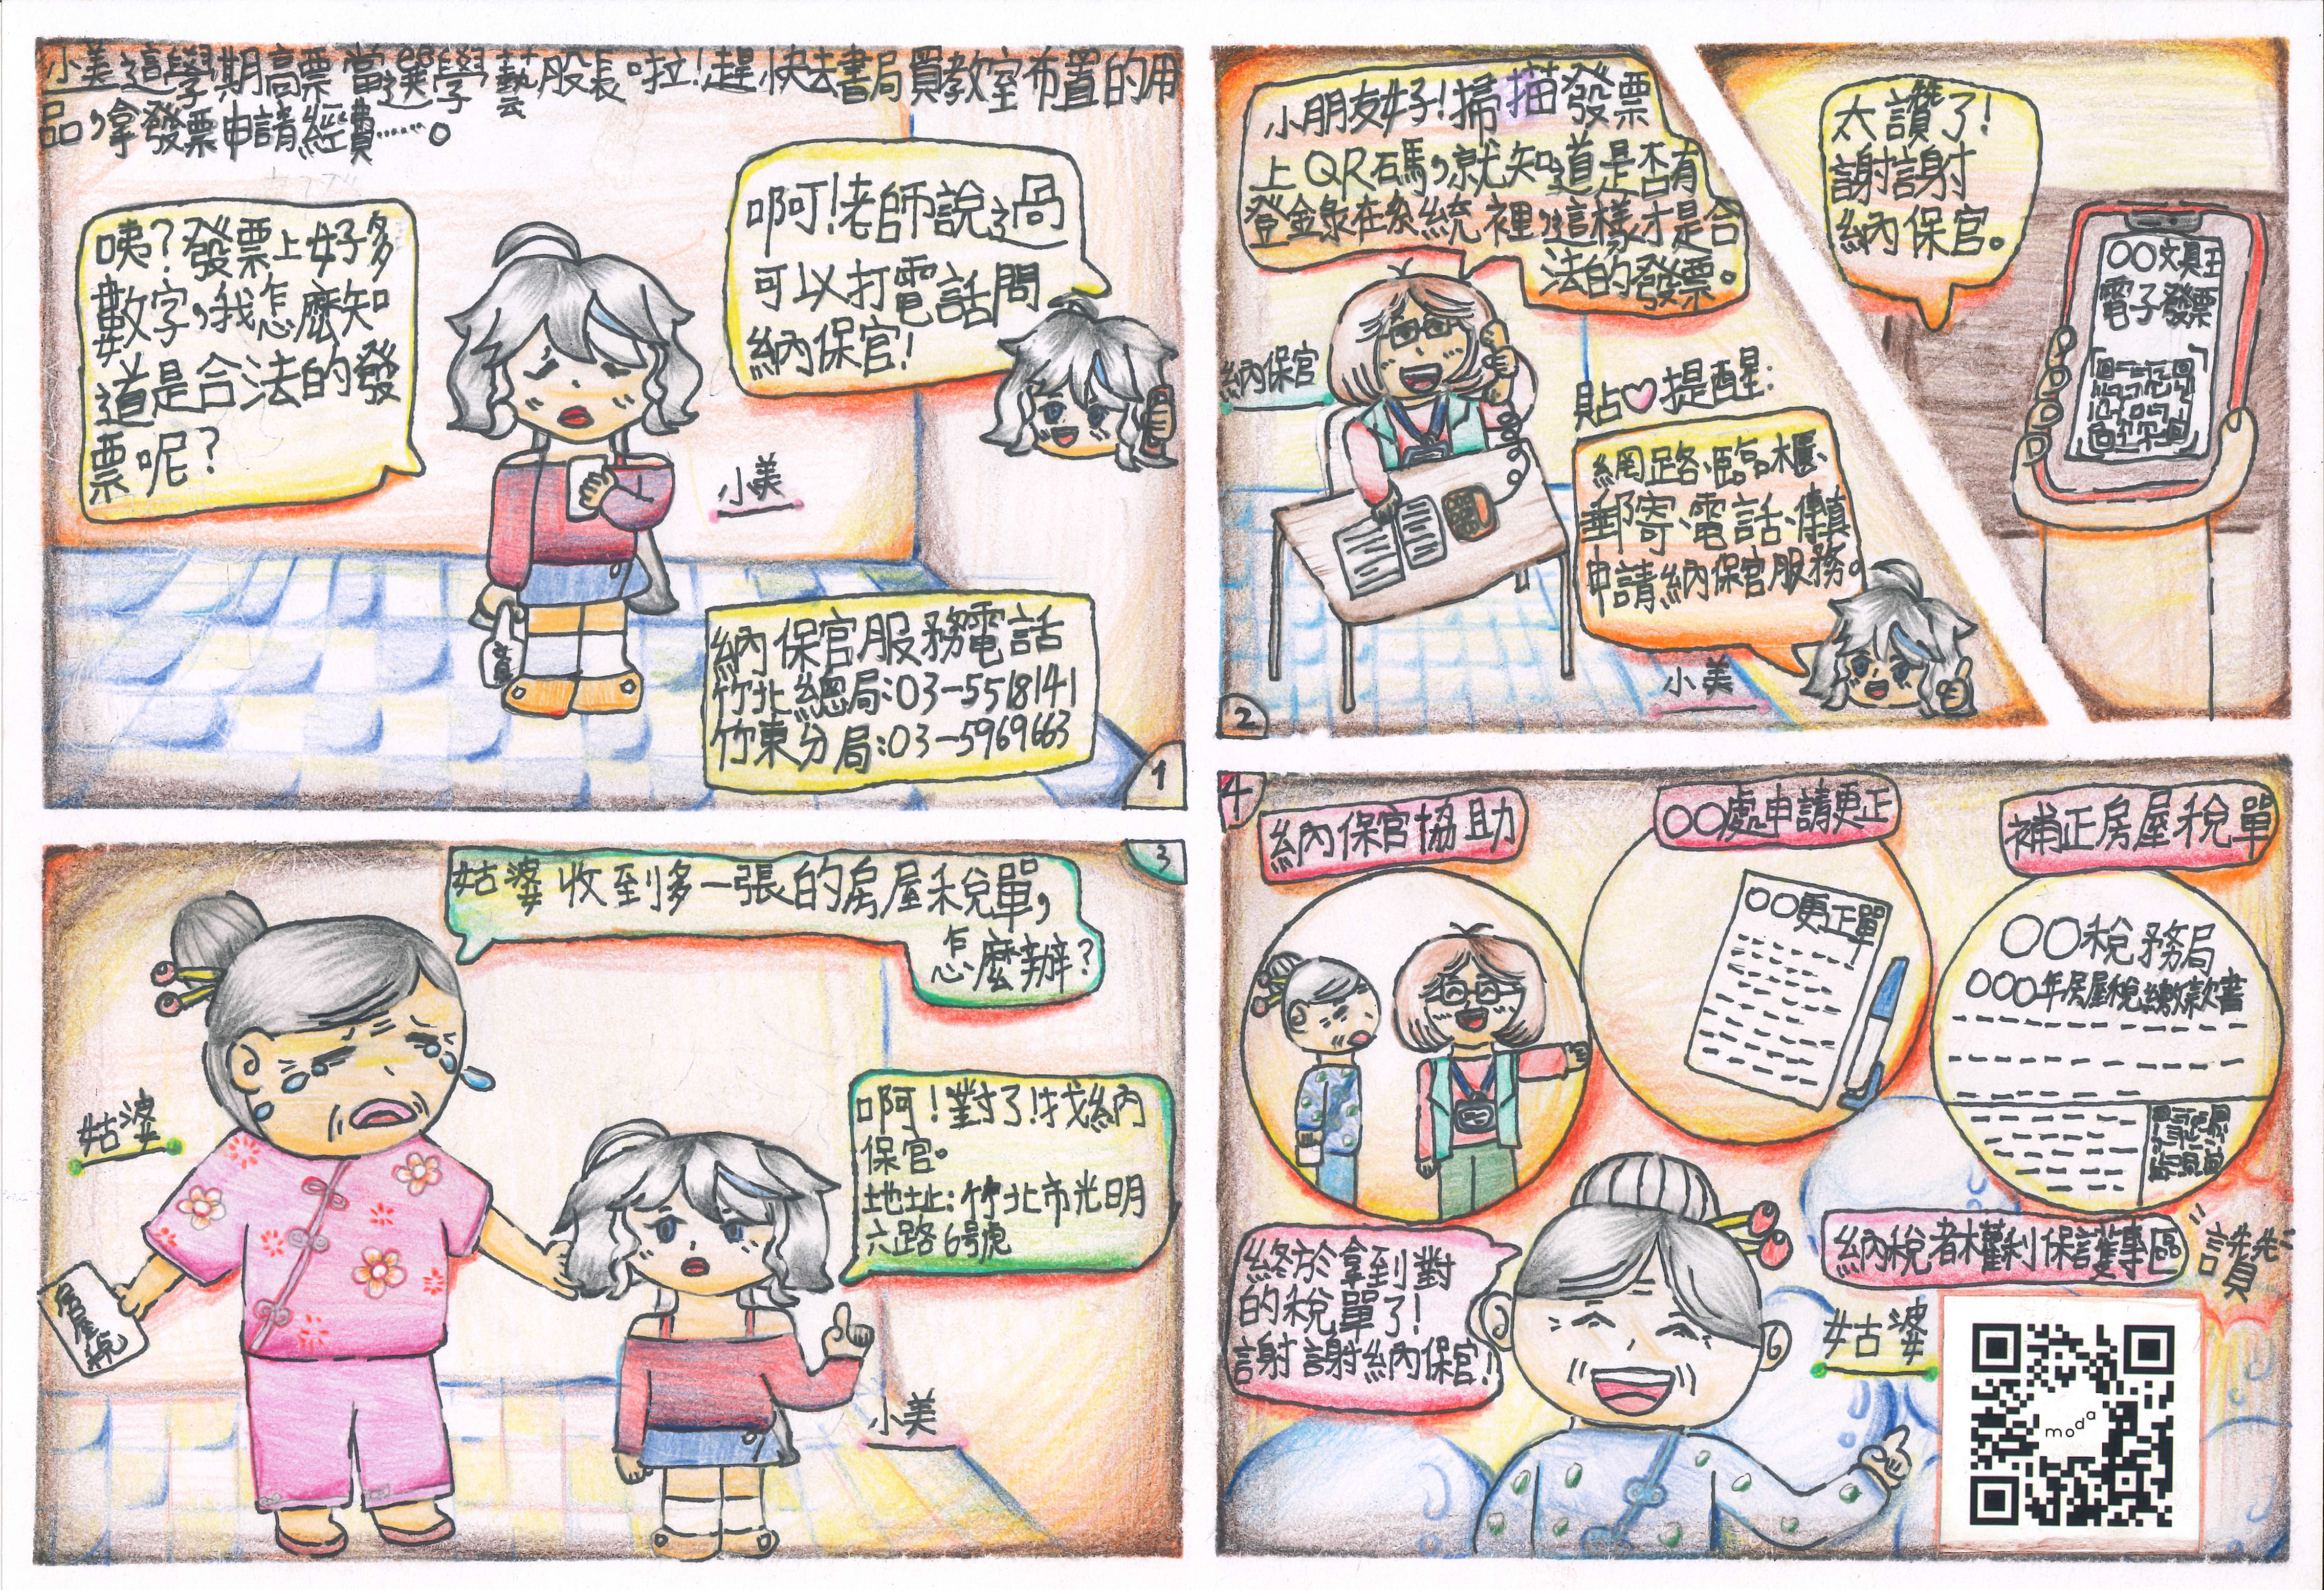 小美這學期高票當選學藝股長啦!趕快去書局買教室布置的用
品,拿發票申請經費……。
咦?發票上好多
數字,我怎麼知
道是合法的發
票呢?
啊!老師說過
可以打電話問
納保官!
小美
納保官服務電話
竹北總局:03-5518141
竹東分局:03-5969663
1
小朋友好!掃描發票
上QR碼,就知道是否有
登錄在系統裡,這樣才是合
法的發票。
納保官
貼♡提醒:
網路、臨櫃、
郵寄、電話、傳真
申請納保官服務。
小美
2
太讚了!
謝謝
納保官。
〇〇文具王
電子發票
3
姑婆收到多一張的房屋稅單,
怎麼辦?
姑婆
房屋稅
啊!對了!找納
保官。
地址:竹北市光明
六路6號
小美
4
納保官協助
〇〇處申請更正
補正房屋稅單
〇〇更正單
〇〇稅務局
〇〇〇年房屋稅繳款書
終於拿到對
的稅單了!
謝謝納保官!
納稅者權利保護專區
讚
姑婆
moda